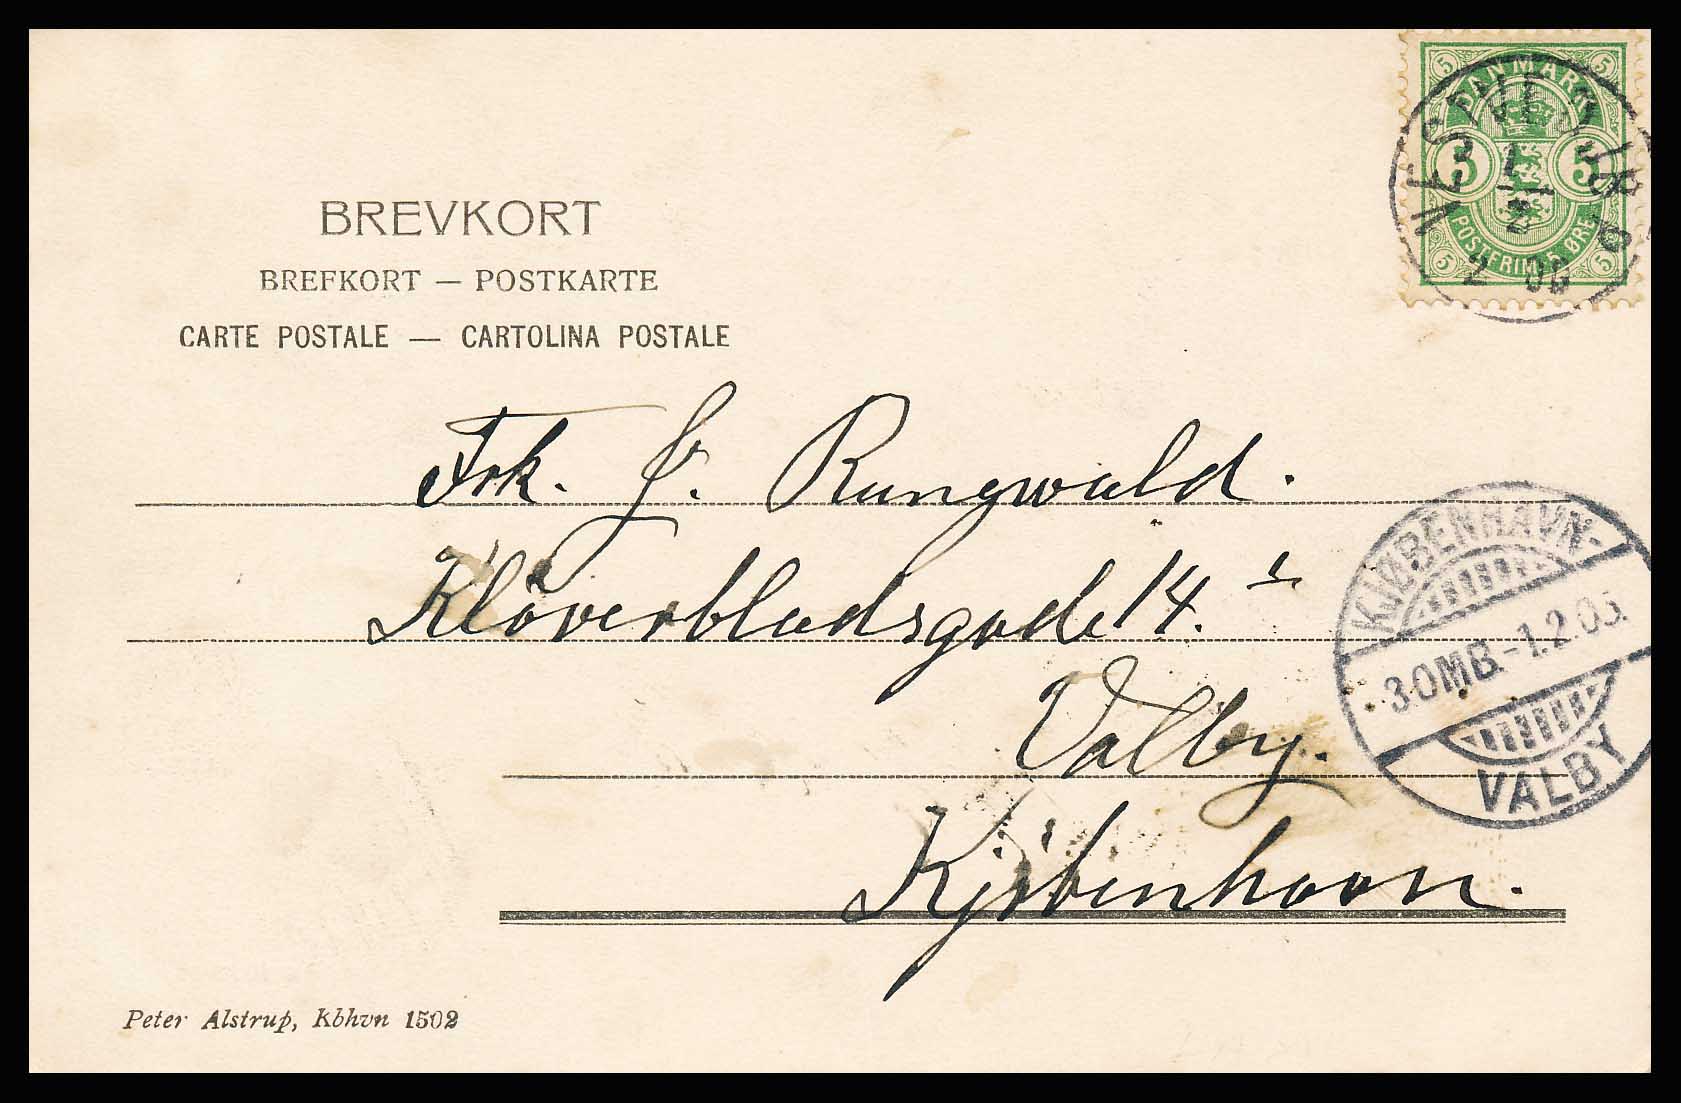 BREVKORT
BREFKORT — POSTKARTE
CARTE POSTALE — CARTOLINA POSTALE
DANMARK
5 5
5 5
5 5
POSTFRIM. 5 ØRE
1
2
Frk. J. Rungwald.
Klöverbladsgade 14. 1
Valby.
Kjöbenhavn.
KJØBENHAVN-
3.OMB.-1.2.05.
VALBY
Peter Alstrup, Kbhvn 1502